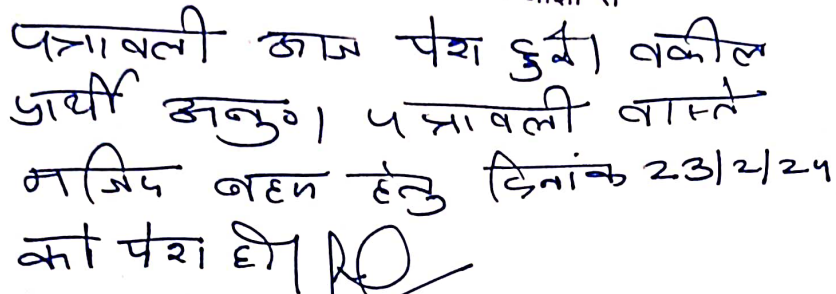 पत्रावली आज पेश हुई। वकील
प्रार्थी अनु०। पत्रावली वास्ते
मजिद बहस हेतु दिनांक 23/2/24
को पेश हो।